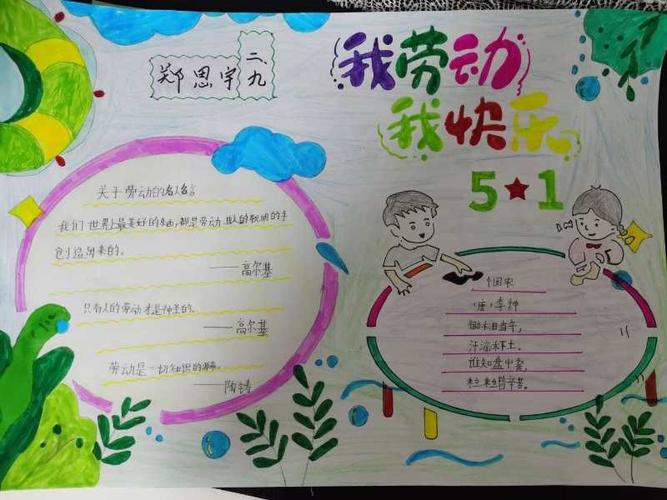 郑思宇
二、九
我劳动
我快乐
5★1
关于劳动的名人名言
我们世界上最美好的东西,都是劳动、由人的聪明的手
创造出来的。
——高尔基
只有人的劳动才是神圣的。
——高尔基
劳动是一切知识的源泉。
——陶铸
悯农
(唐)李绅
锄禾日当午,
汗滴禾下土。
谁知盘中餐,
粒粒皆辛苦。